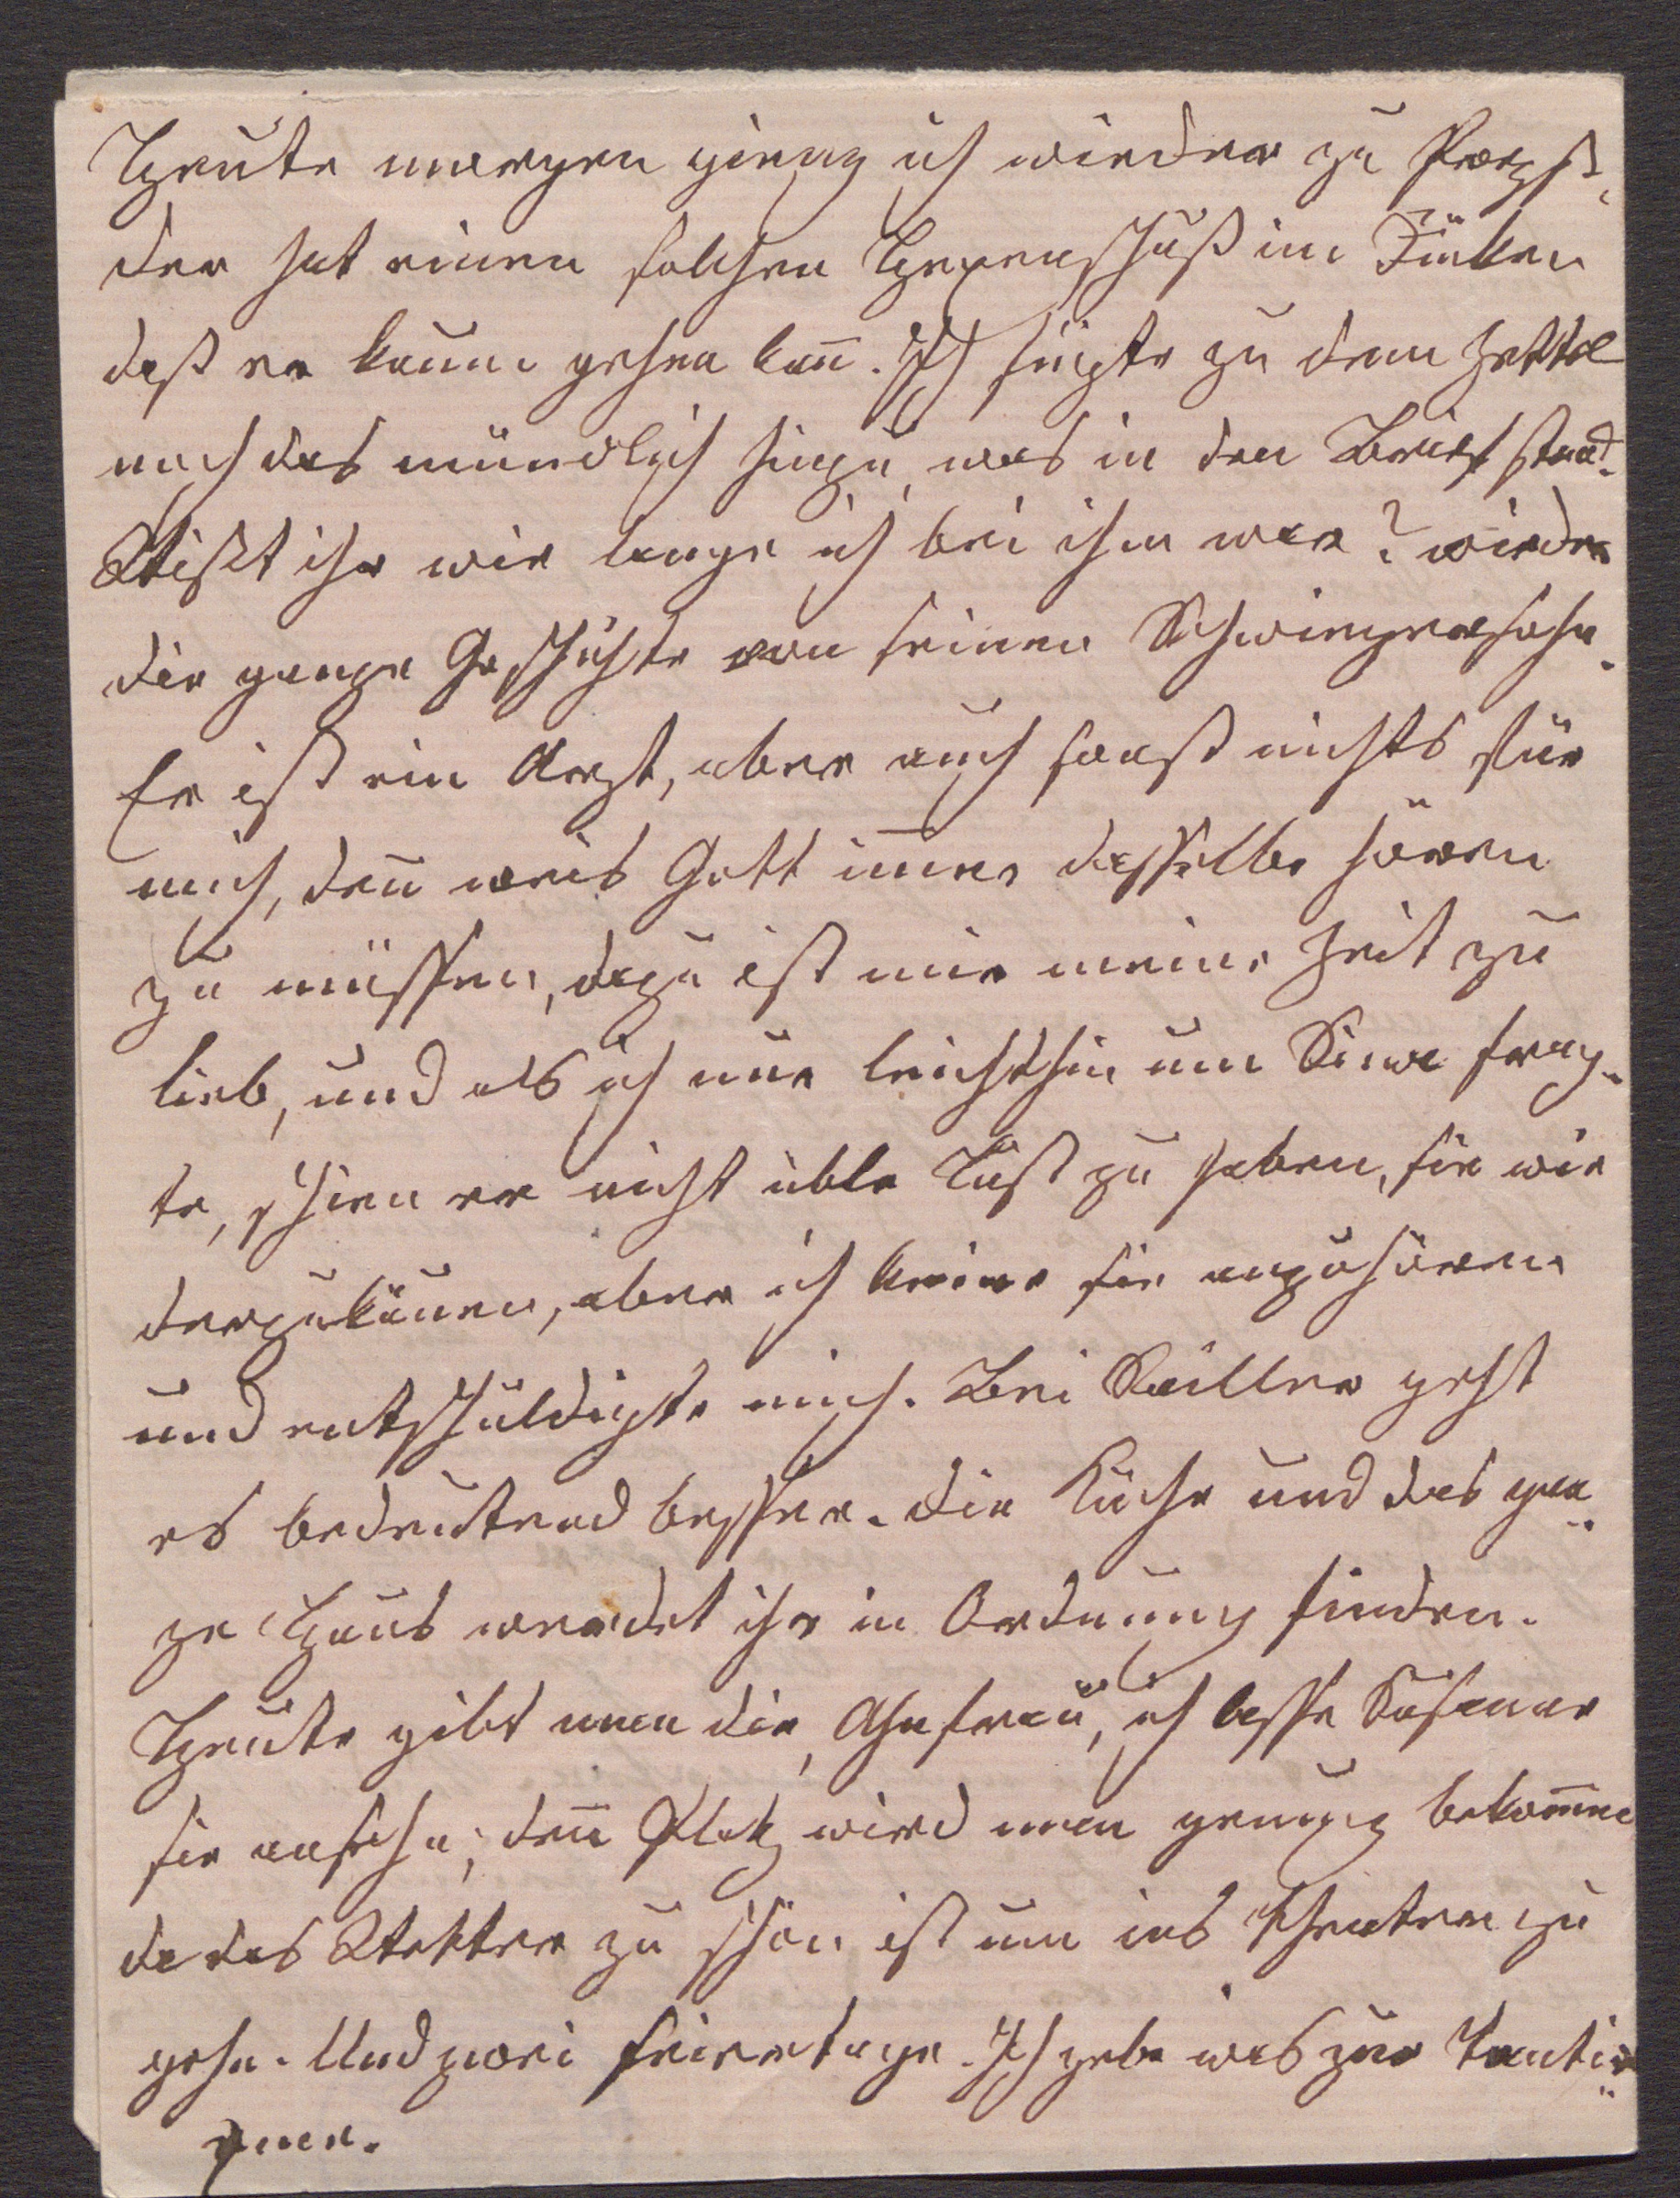 Heute morgen gieng ich wieder zu
der hat einen solchen Hexenschuß im Rücken
daß er kaum gehen kan̄. Ich fügte zu dem Zettel
noch das mündlich hinzu, was in den Brief stand.
Wißt ihr wie lange ich bei ihm war? wieder
die ganze Geschichte von seinen Schwiegersohn.
Er ist ein Arzt, aber auch sonst nichts für
mich, den̄ weis Gott im̄er dasselbe hören
zu müssen, dazu ist mir meine Zeit zu
lieb, und als ich nur leichthin um frag-
te, schien er nicht üble Lust zu haben, sie wie
derzukäuen, aber ich keine sie anzuhören
und entschuldigte mich. Bei geht
es bedeutend besser. Die Küche und das gan-
ze Haus werdet ihr in Ordnung finden.
Heute gibt man die, Ahnfrau, ich lasse Susanne
sie ansehn, den̄ Platz wird man genug bekom̄en
da das Wetter zu schön ist um ins Theater zu
gehn. Und zwei Feiertage. Ich gebe was zur